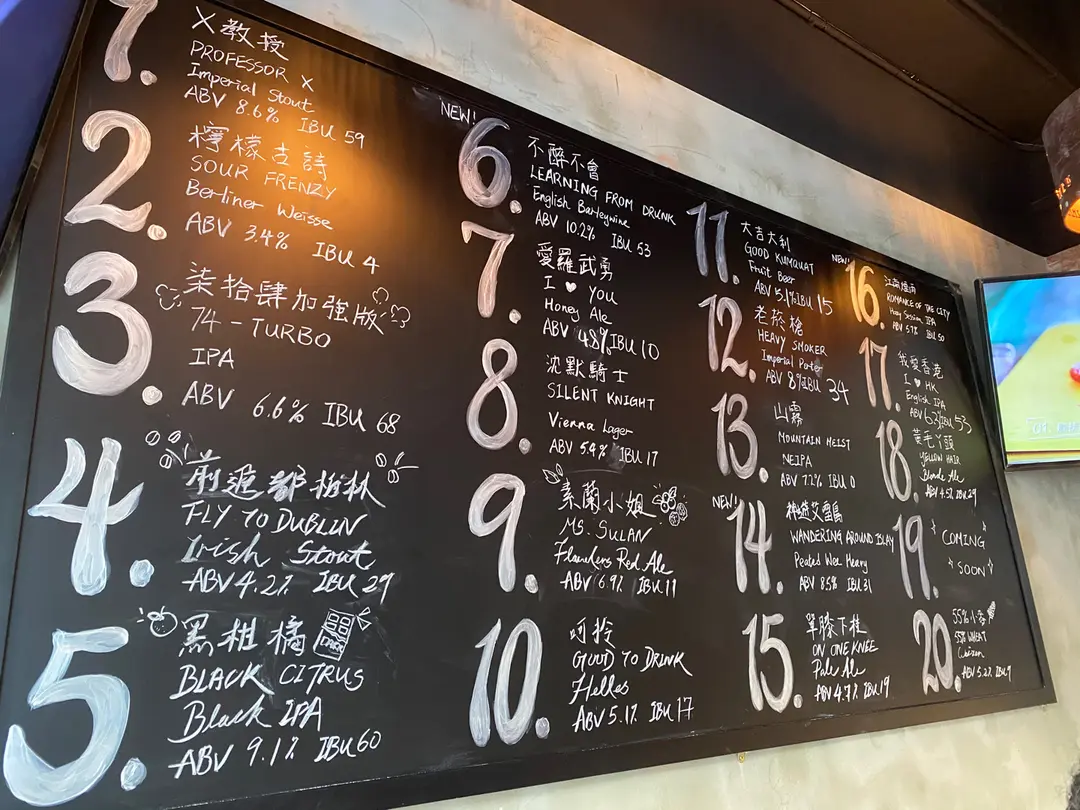 1.
X教授
PROFESSOR X
Imperial Stout
ABV 8.6% IBU 59
2.
檸檬古詩
SOUR FRENZY
Berliner Weisse
ABV 3.4% IBU 4
3.
柒拾肆加強版
74-TURBO
IPA
ABV 6.6% IBU 68
4.
前進都柏林
FLY TO DUBLIN
Irish Stout
ABV 4.2% IBU 29
5.
黑柑橘
BLACK CITRUS
Black IPA
ABV 9.1% IBU 60
NEW!
6.
不醉不會
LEARNING FROM DRUNK
English Barleywine
ABV 10.2% IBU 53
7.
愛羅武勇
I ♥ YOU
Honey Ale
ABV 4.8% IBU 10
8.
沈默騎士
SILENT KNIGHT
Vienna Lager
ABV 5.4% IBU 17
9.
素蘭小姐
MS. SULAN
Flanders Red Ale
ABV 6.9% IBU 11
10.
呵拎
GOOD TO DRINK
Helles
ABV 5.1% IBU 17
11.
大吉大利
GOOD KUMQUAT
Fruit Beer
ABV 5.1% IBU 15
12.
老菸槍
HEAVY SMOKER
Imperial Porter
ABV 8% IBU 34
13.
山霧
MOUNTAIN HEIST
NEIPA
ABV 7.2% IBU 0
NEW!
14.
艾雷島
WANDERING AROUND ISLAY
Peated Wee Heavy
ABV 8.5% IBU 31
15.
單膝下桂
ON ONE KNEE
Pale Ale
ABV 4.7% IBU 19
NEW!
16.
江南煙雨
ROMANCE OF THE CITY
Hazy Session IPA
ABV 5.7% IBU 50
17.
我愛香港
I ♥ HK
English IPA
ABV 6.2% IBU 53
18.
黃毛丫頭
YELLOW HAIR
Blonde Ale
ABV 4.5% IBU 29
19.
COMING
SOON
20.
55%小麥
55% WHEAT
Weizen
ABV 5.2% IBU 9